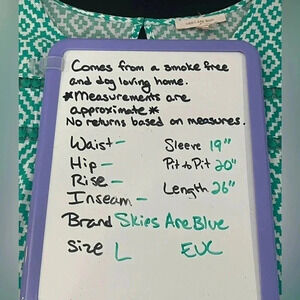 Comes from a smoke free
and dog loving home.
*Measurements are
approximate*
No returns based on measures.
Waist -
Hip -
Rise -
Inseam -
Sleeve 19"
Pit to Pit 20"
Length 26"
Brand Skies Are Blue
Size L EUC